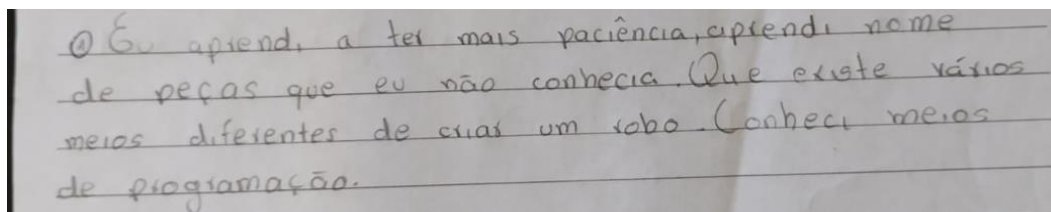 ① Eu aprendi a ter mais paciência, aprendi nome
de peças que eu não conhecia. Que existe vários
meios diferentes de criar um robo. Conheci meios
de programação.